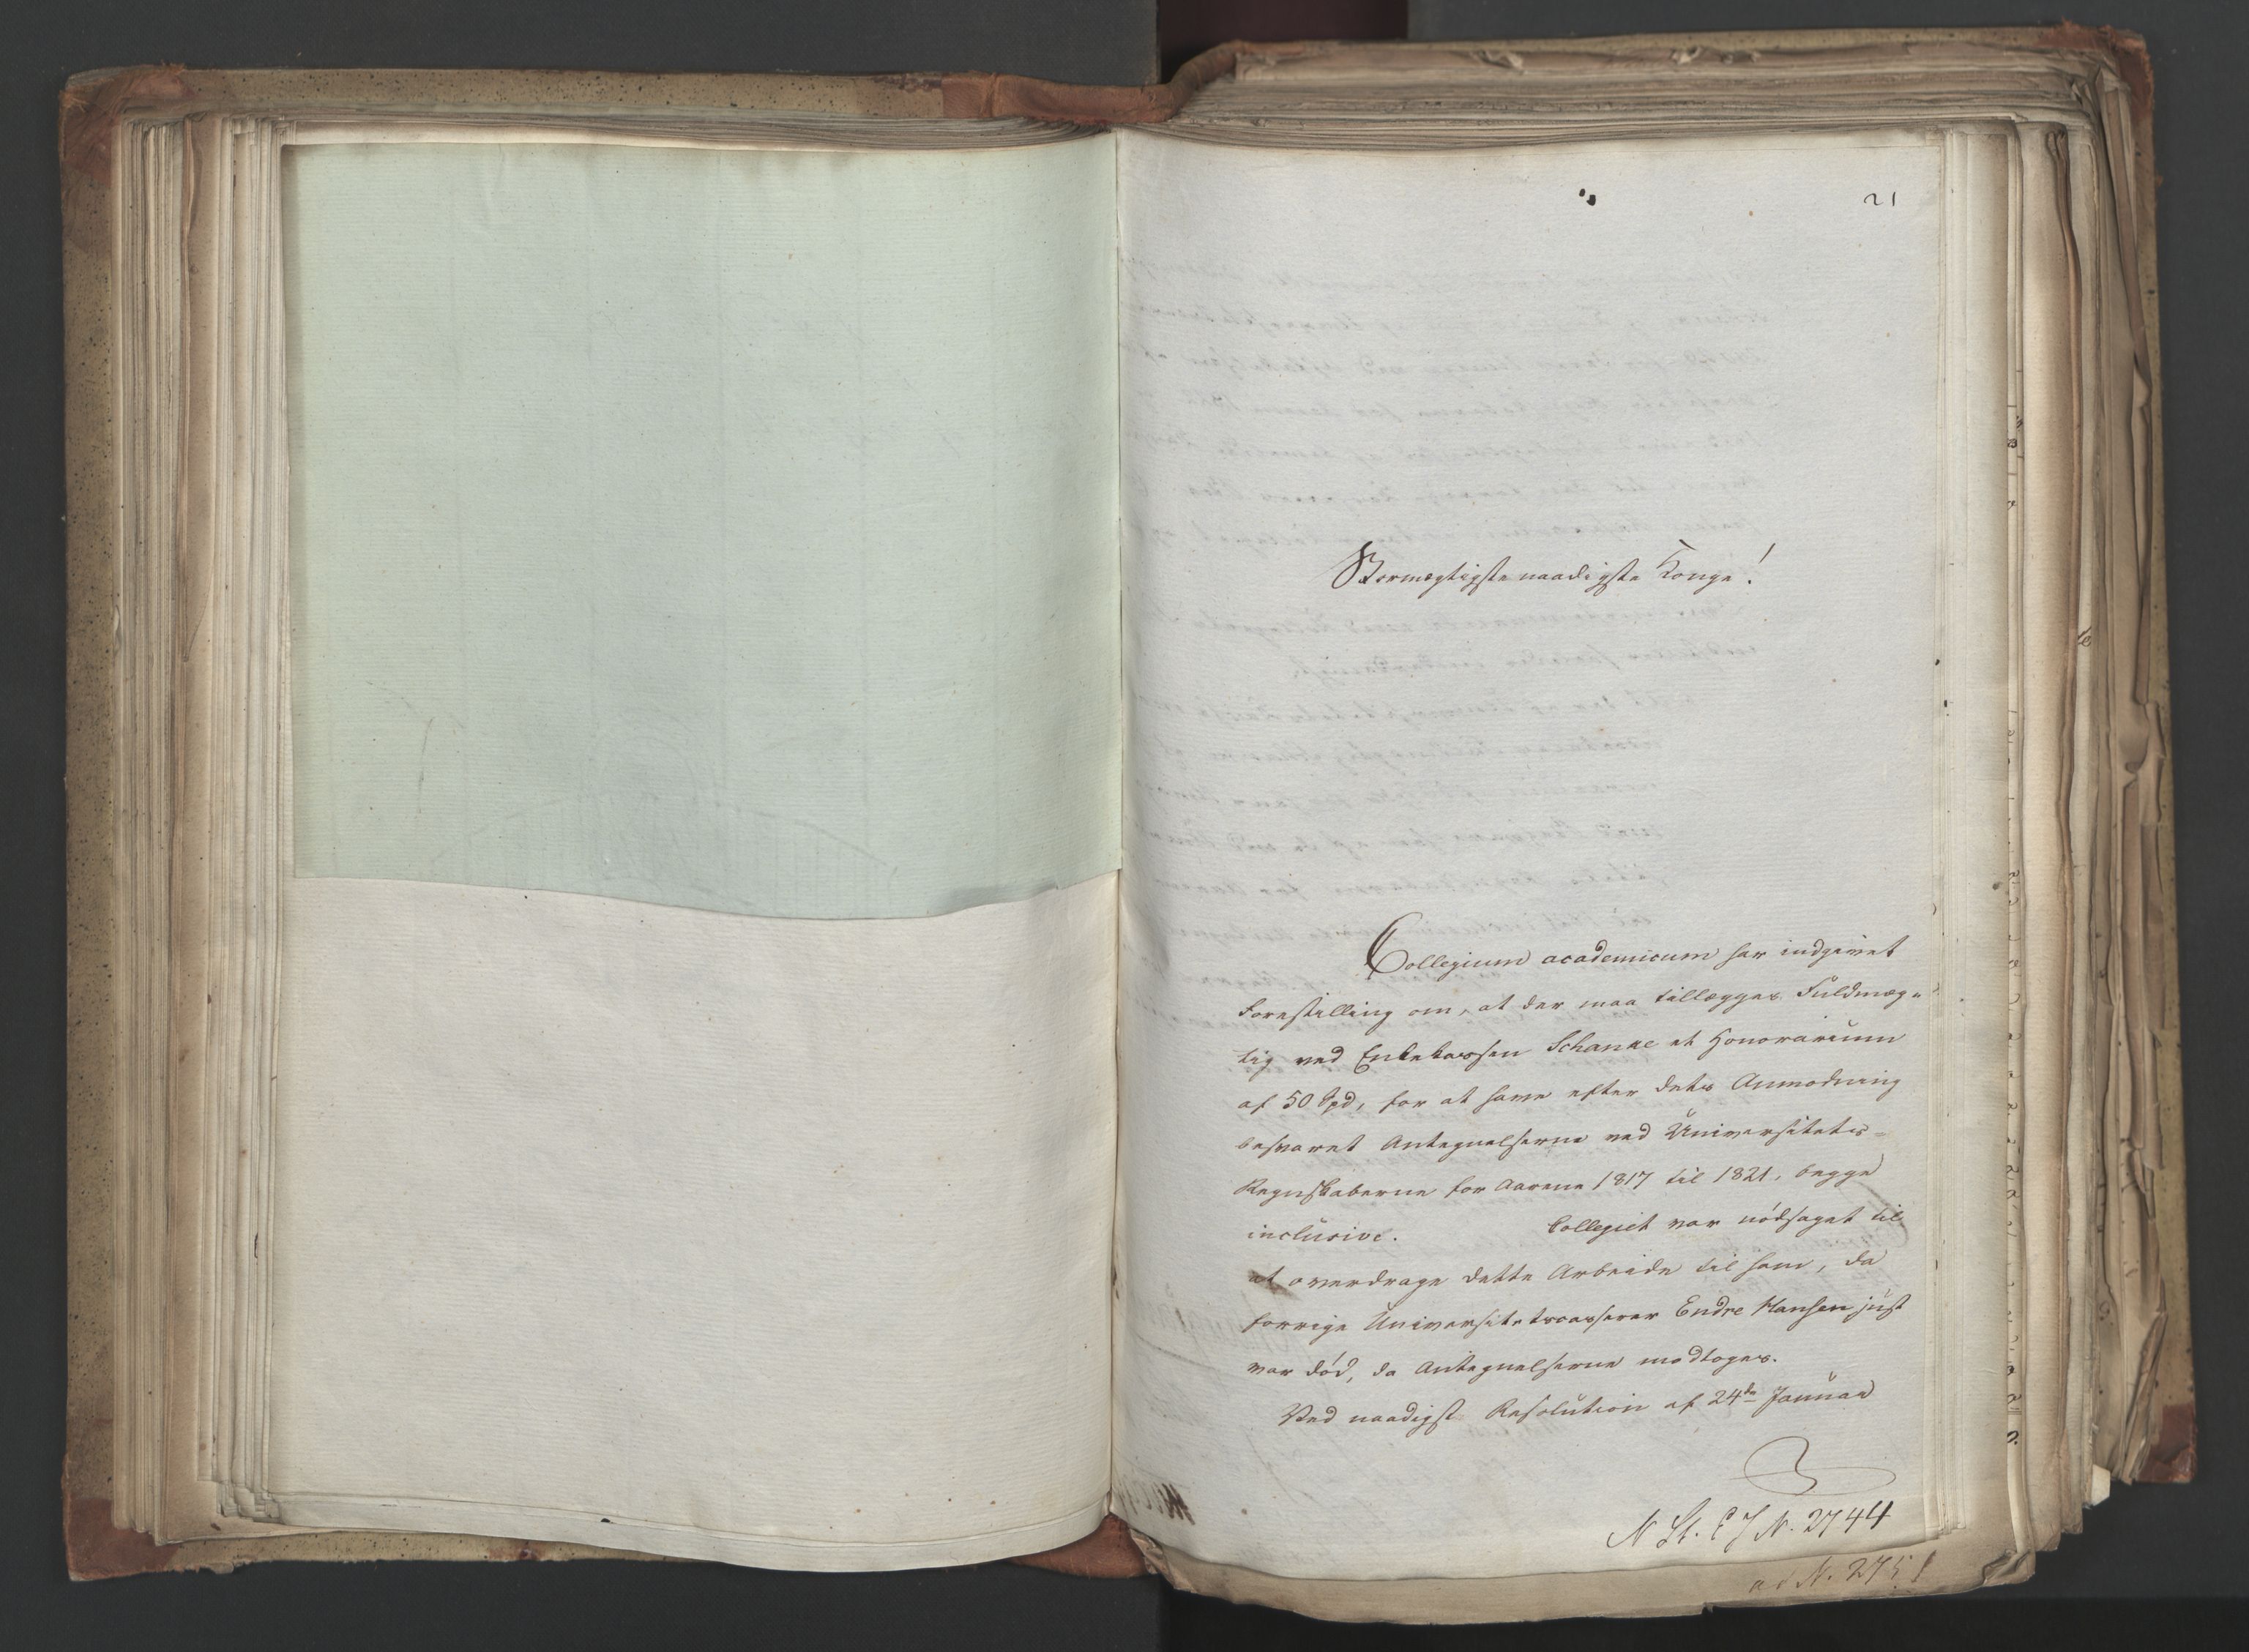 21
Stormægtigste naadigste Konge!
Collegium academicum har indgivet
Forestilling om, at der maa tillægges Fuldmæg-
tig ved Enkekassen Schanke et Honorarium
af 50 Spd, for at have efter dets Anmodning
besvaret Antegnelserne ved Universitets-
Regnskaberne for Aarene 1817 til 1821, begge
inclusive. Collegiet var nödsaget til
at overdrage dette Arbeide til ham, da
forrige Universitetscasserer Endre Hansen just
var död, da Antegnelserne modtoges.
Ved naadigst Resolution af 24de Januar
N St. E J N. 2744
ad N. 2751